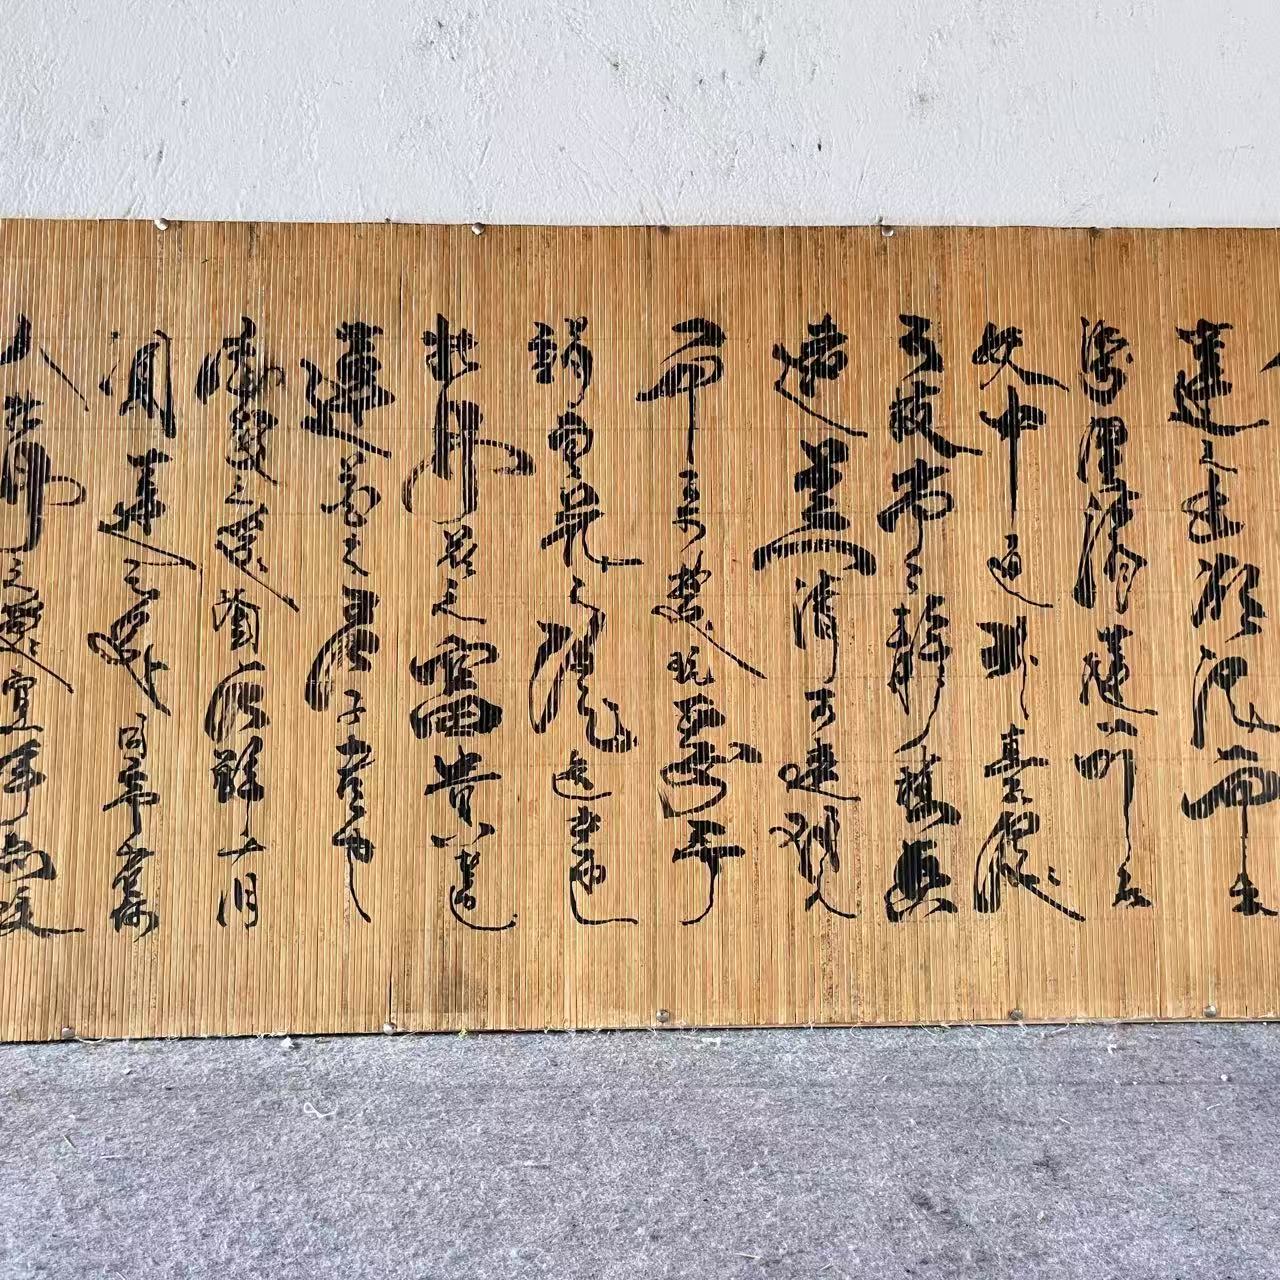 蓮之出淤泥而不
染濯清漣而不
妖中通外直不蔓
不枝亭々静植香
遠益清可遠觀
而不可褻玩焉予
謂菊花之隱逸者也
牡丹花之富貴者也
蓮花之君子者也
噫菊之愛陶後鮮有
聞蓮之愛同予者何
人牡丹之愛宜乎衆矣